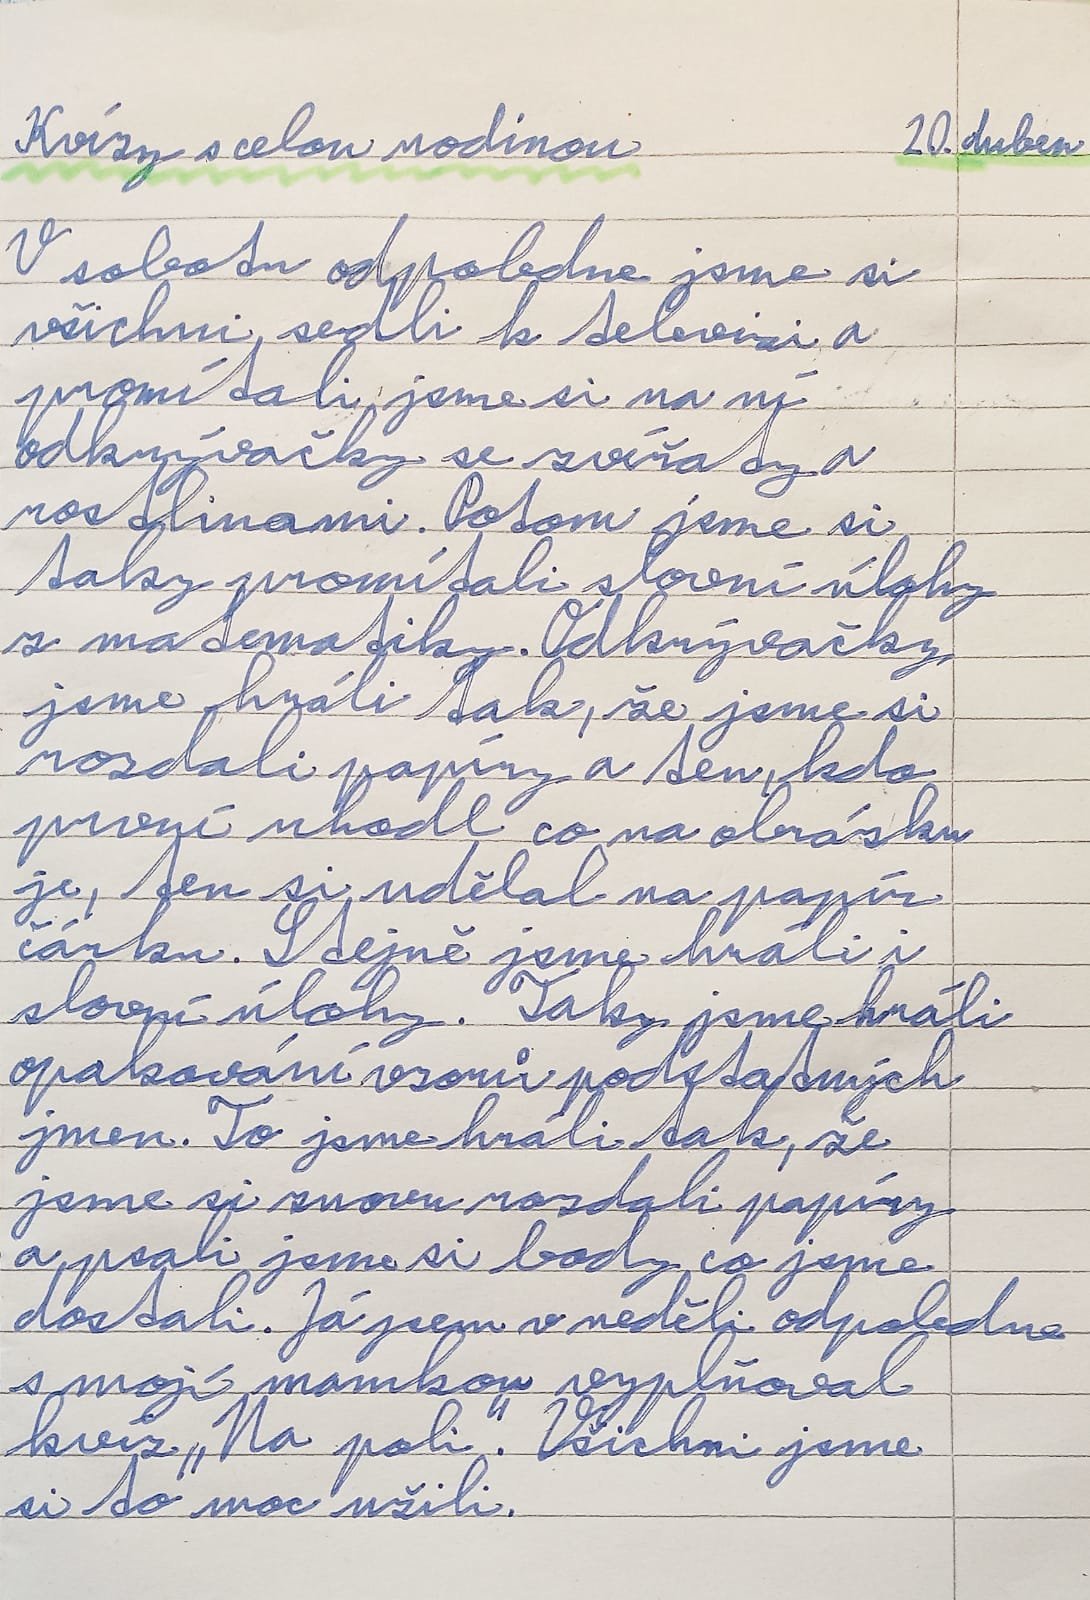 Kvízy s celou rodinou 20. duben
V sobotu odpoledne jsme si
všichni sedli k televizi a
promítali jsme si na ní
odkrývačky se zvířaty a
rostlinami. Potom jsme si
taky promítali slovní úlohy
z matematiky. Odkrývačky
jsme hráli tak, že jsme si
rozdali papíry a ten, kdo
první uhodl co na obrázku
je, ten si udělal na papír
čárku. Stejně jsme hráli i
slovní úlohy. Taky jsme hráli
opakování vzorů podstatných
jmen. To jsme hráli tak, že
jsme si znovu rozdali papíry
a psali jsme si body co jsme
dostali. Já jsem v neděli odpoledne
s mojí mamkou vyplňoval
kvíz „Na poli“. Všichni jsme
si to moc užili.